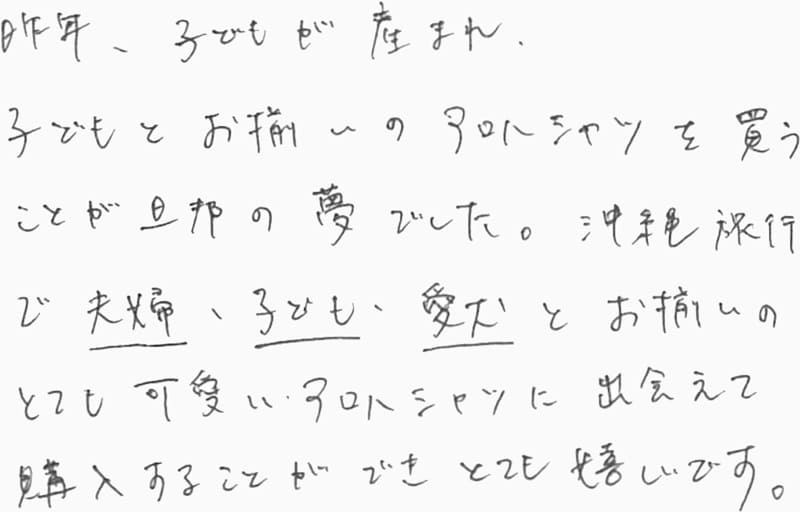 昨年、子どもが産まれ、
子どもとお揃いのアロハシャツを買う
ことが旦那の夢でした。沖縄旅行
で夫婦、子ども、愛犬とお揃いの
とても可愛いアロハシャツに出会えて
購入することができとても嬉しいです。